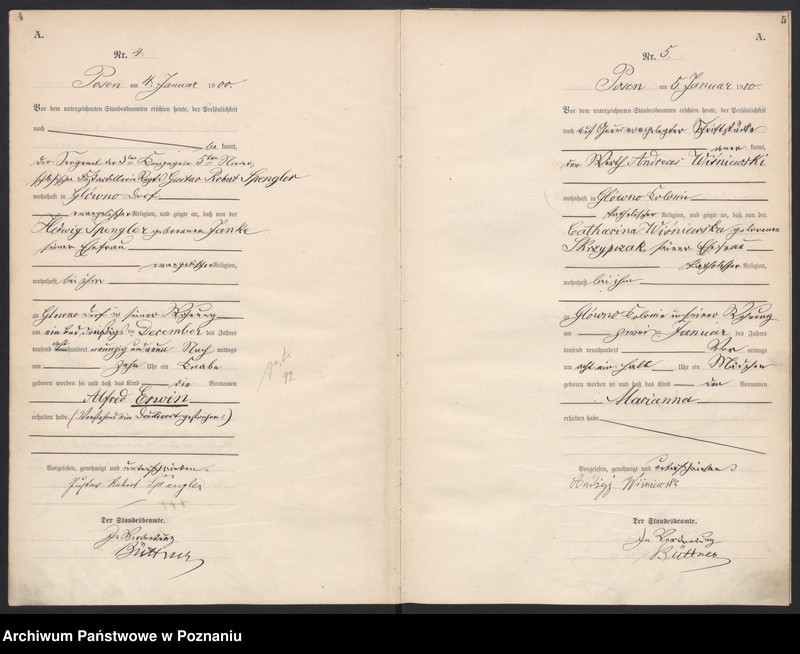 4
A.
Nr. 4.
Posen am 4. Januar 1900.
Vor dem unterzeichneten Standesbeamten erschien heute, der Persönlichkeit
nach
be kannt,
der Sergeant der 3ten Kompagnie 5ten Nieder-
schlesischen Fußartillerie Regts Gustav Robert Spengler
wohnhaft in Glówno Dorf
evangelischer Religion, und zeigte an, daß von der
Hedwig Spengler geborenen Janke
seiner Ehefrau
evangelischer Religion,
wohnhaft bei ihm
zu Glowno Dorf in seiner Wohnung
am ein und dreißigsten December des Jahres
tausend acht hundert neunzig und neun Nach mittags
um zehn Uhr ein Knabe
geboren worden sei und daß das Kind die Vornamen
Alfred Erwin
erhalten habe. (Vorstehend ein Druckwort gestrichen.)
Vorgelesen, genehmigt und unterschrieben.
Gustav Robert Spengler
Der Standesbeamte.
In Vertretung
Büttner
92
5
A.
Nr. 5.
Posen am 5. Januar 1900.
Vor dem unterzeichneten Standesbeamten erschien heute, der Persönlichkeit
nach auf Grund vorgelegter Schriftstücke
kannt,
der Wirth Andreas Wiśniewski
wohnhaft in Glówno Kolonie
katholischer Religion, und zeigte an, daß von der
Catharina Wiśniewska geborenen
Skrzypczak, seiner Ehefrau
katholischer Religion,
wohnhaft bei ihm
zu Glówno Colonie in seiner Wohnung
am zwei ten Januar des Jahres
tausend neunhundert Vor mittags
um acht ein halb Uhr ein Mädchen
geboren worden sei und daß das Kind den Vornamen
Marianna
erhalten habe
Vorgelesen, genehmigt und unterschrieben
Wiśniewski
Der Standesbeamte.
In Vertretung
Büttner
Archiwum Państwowe w Poznaniu